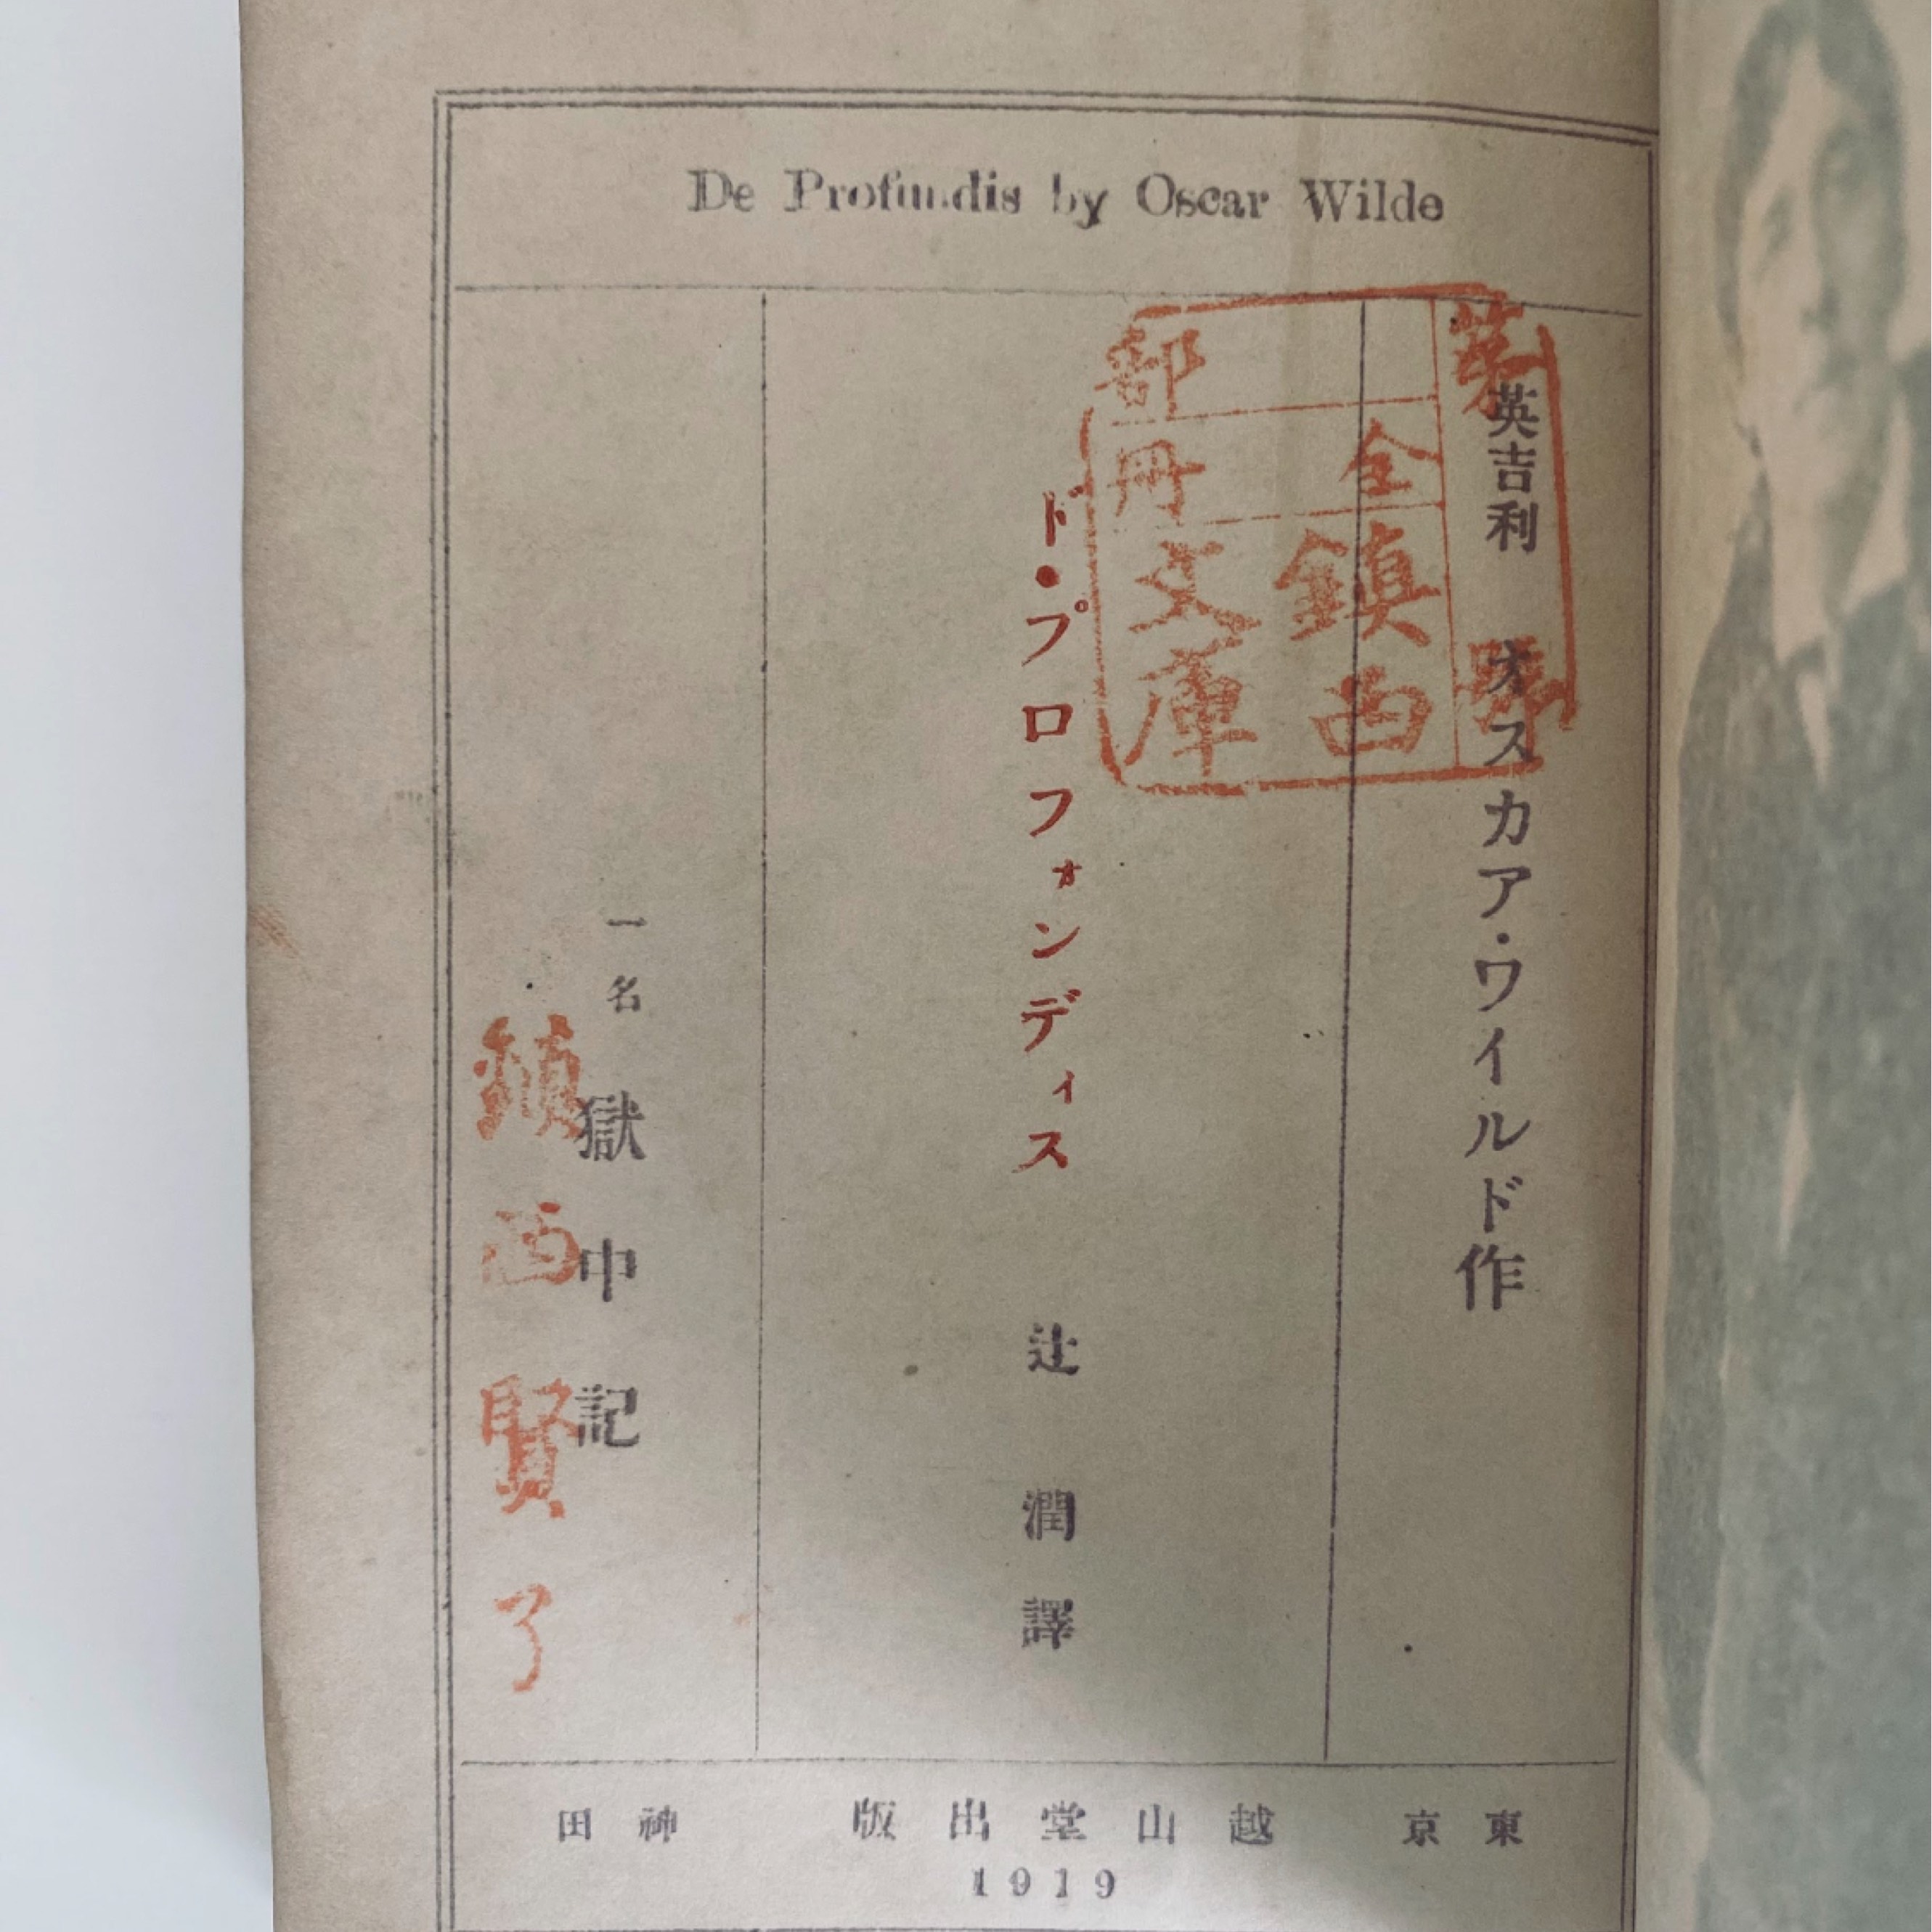 De Profundis by Oscar Wilde
英吉利 オスカア・ワイルド作
ド・プロフォンディス 辻潤譯
一名 獄中記
東京 越山堂出版 神田
1919
全 冊 部
鎮西文庫
鎮西賢了